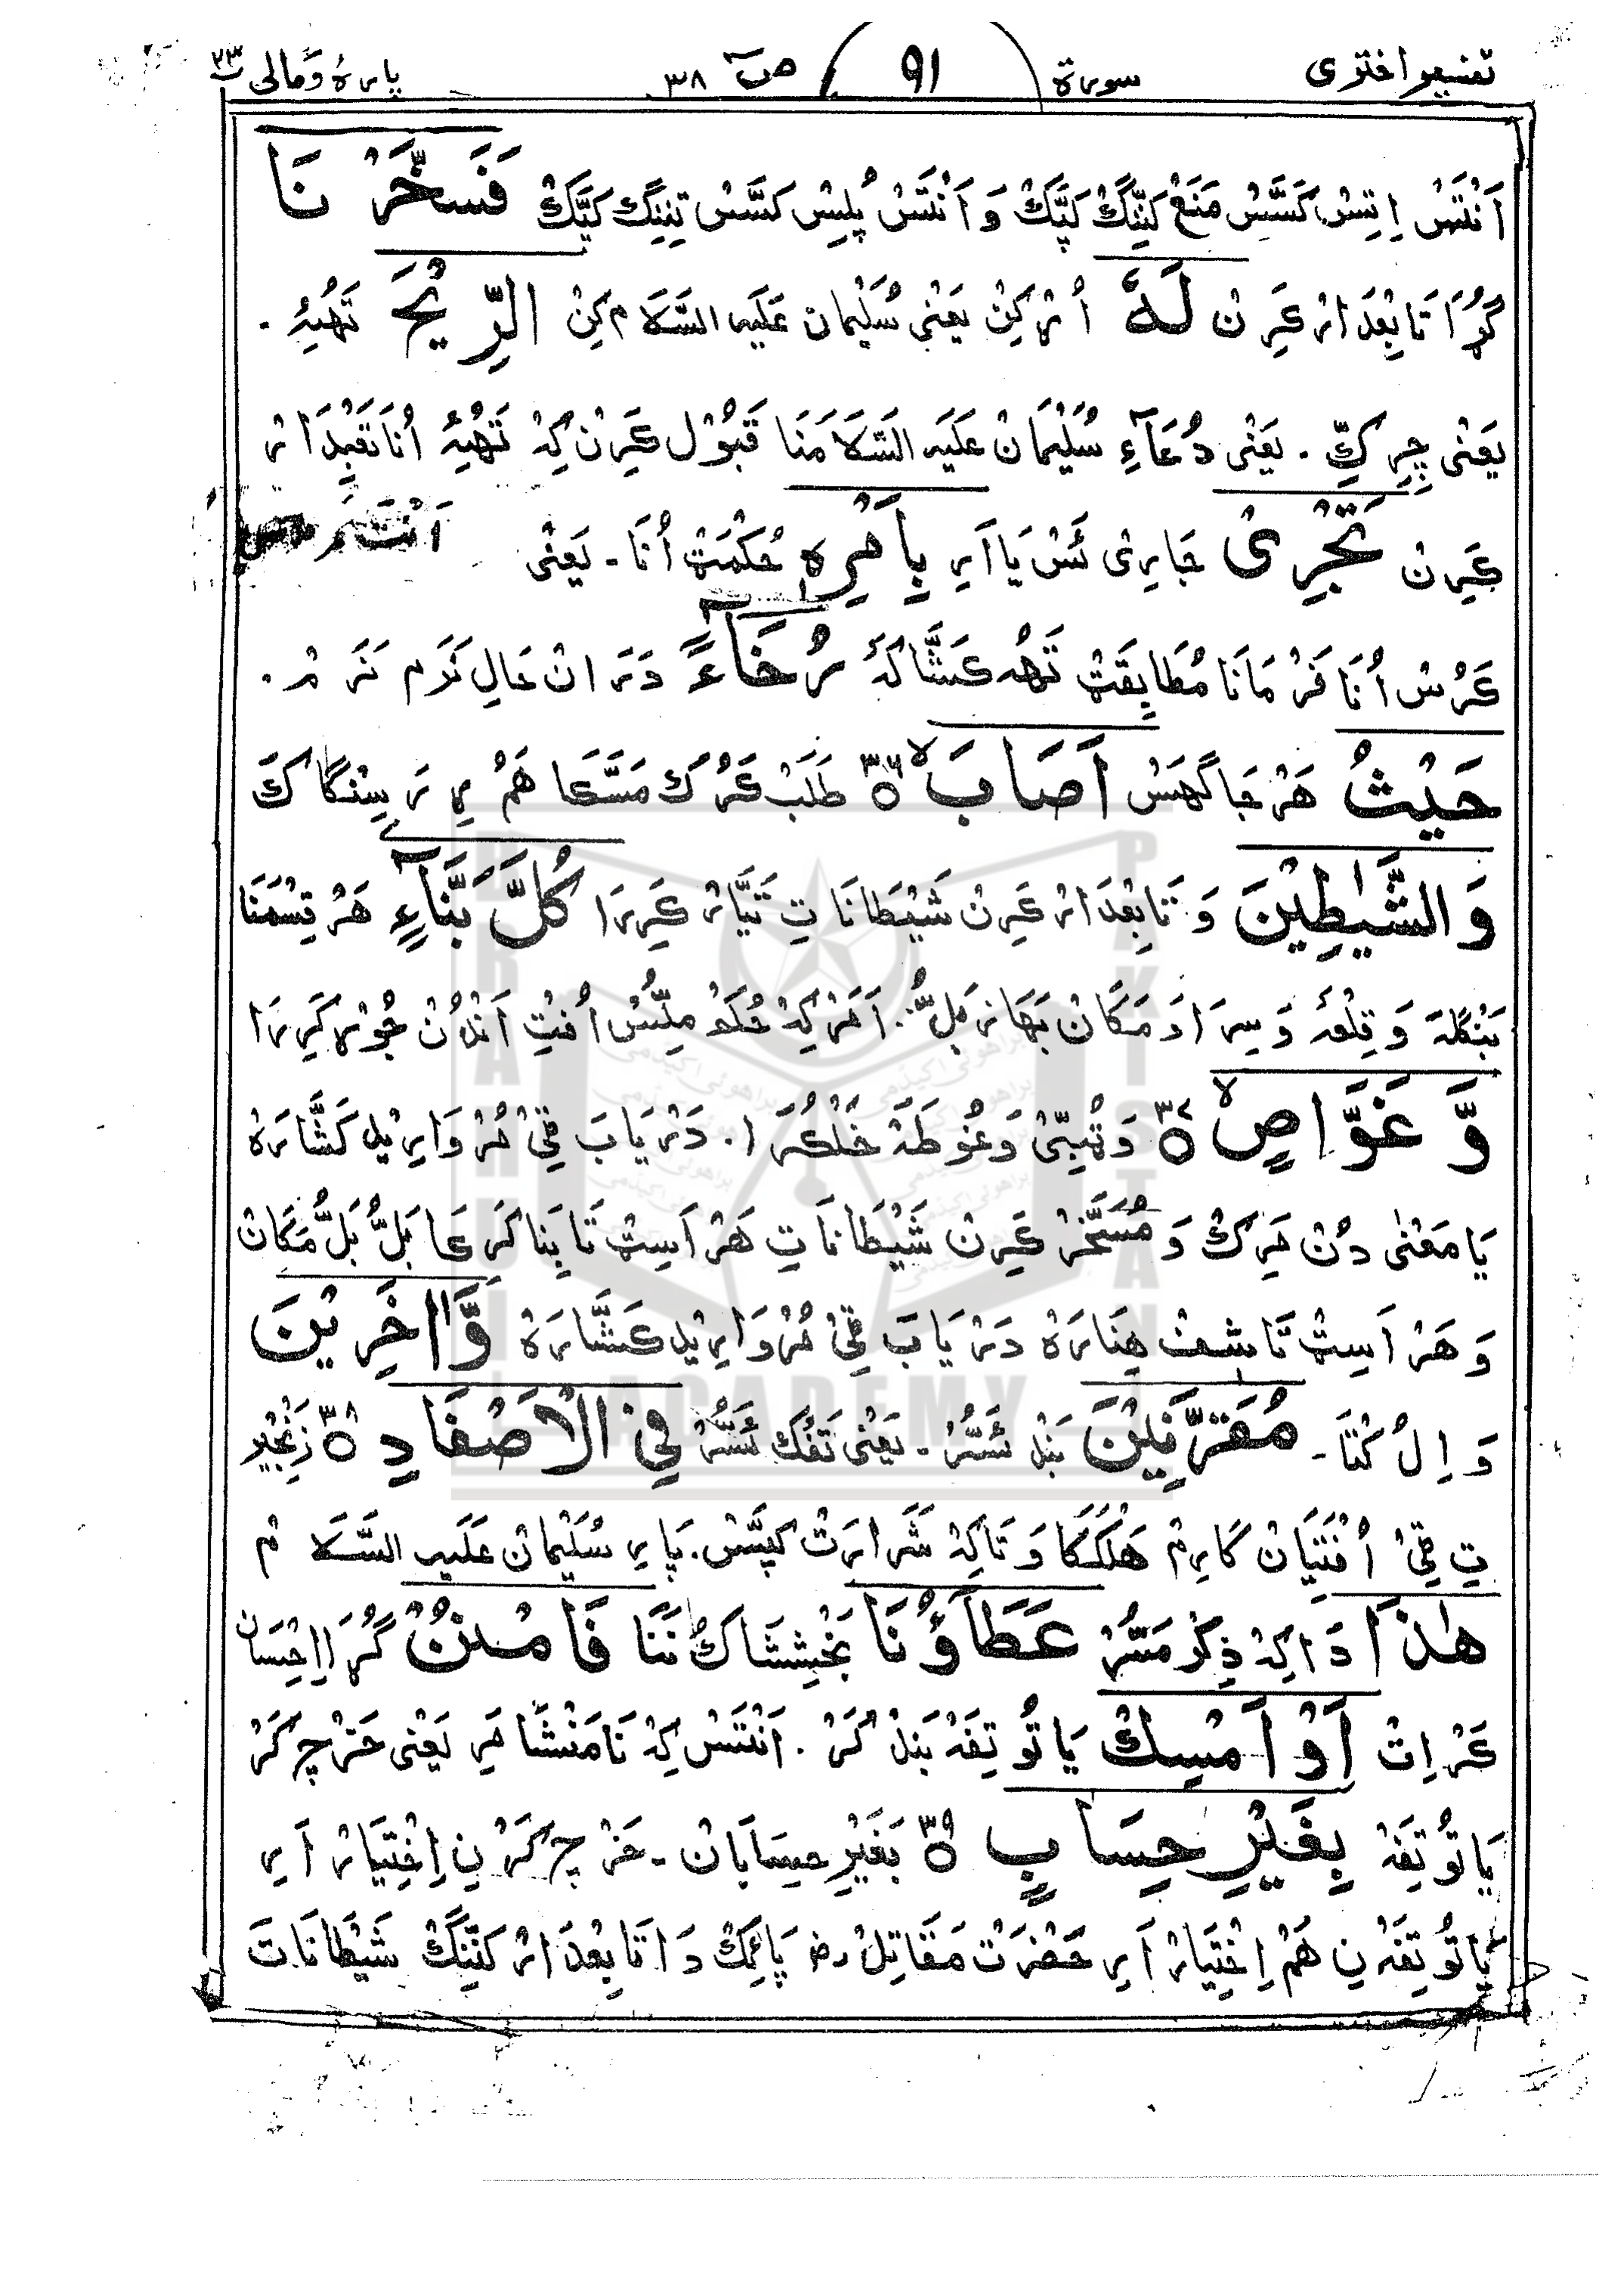 تفسیر اختری سورة ( 91 ) صٓ ٣٨ پارۂ وَمالی ٢٣
اَنْتَسْ اِتِسْ کَسَّسْ مَنَعْ کَنِّنْگْ کَپَّکْ وَ اَنْتَسْ پُلِسْ کَسَّسْ تِنِنگ کَپَّکْ فَسَخَّرْ نَا
گُڑَا تَابِعْدَارْ کَرِنْ لَهٗ اُرْکِنْ یَعْنِی سُلَیْمَان عَلَیہ السَّلَام کِنْ الرِّیْحَ تَھُِٔ ۔
یَعْنٰی چِرِکِّ ۔ یَعْنٰی دُعَآءِ سُلَیْمَانْ عَلَیہ السَّلَامْنَا قَبُوْل کَرِنْ کِہْ تَھُِٔ اُنَا تَعْبِدَارْ
کَرِنْ تَجْرِیْ جَارِیْ ئَسْ یَا اَرِ بِاَمْرِهٖ حُکْمَتْ اُنَا ۔ یَعْنٰی اَنْتَسْ
کَرُسْ اُنَا فَرْمَانَا مُطَابِقَتْ تَھُِ کَشَّاکَہْ رُخَآءً دَرَانْ حَالِ نَرَم نَرَمْ ۔
حَیْثُ ھَرْ جَاگَھَسْ اَصَابَ ۙ٣٦ طَلَبْ کَرُکْ مَسَّکَا ھَمْ رِ تَرِسِنْگَاکَ
وَ الشَّیٰطِیْنَ وَ تَابِعْدَارْ کَرِنْ شَیْطَانَاتِ تَیَّارْ کَرِرَا کُلَّ بَنَّآءٍ ھَرْ قِسْمَنَا
بَنْگَلَہْ وَ قِلْعَہْ وَ سِرَا دَ مَکَانْ بَھَازْ بَلُّ ۔ اَمَرْ کِہْ حُکَمْ مِلِّسُ اُفْتِ اَنْدُنْ جُوْڑ کَرِرَا
وَّ غَوَّاصٍ ۙ٣٧ وَ ٹُبِّیْ وَ غُوطَہْ خَلْکُرَا ۔ دَرْیَابَ ٹِیْ مُرْوَارِیْد کَشَّارَہْ
یَا مَعْنٰی دُنْ مَرِکْ وَ مُسَخَّرْ کَرِنْ شَیْطَانَاتِ ھَرْ اَسِٹْ تَا بِنَا کَرَکَا بَلُّ بَلُّ مَکَانْ
وَ ھَرْ اَسِٹْ تَا شِفْ ھِنَارَہْ دَرْیَابَ ٹِیْ مُرْوَارِیْد کَشَّارَہْ وَّاٰخَرِیْنَ
وَ اِلُ کُنْتَا ۔ مُقَرَّنِیْنَ بَنْد ئَسُّرْ ۔ یَعْنٰی تَفُکْ ئَسُّرْ فِی الْاَصْفَادِ ۝٣٨ زَنْجِیْر
تِ ٹِیْ اُفْتَیَانْ کَارِمْ ھَلْکَکَا وَ تَاکِہْ شَرَارَتْ کَپَّسْ ۔ پَارِ سُلَیْمَانْ عَلَیہ السَّلَامْ
ھٰذَا دَا کِہْ ذِکَرْ مَسُّرْ عَطَآؤُنَا بَخْشِشَاکْ نَنَا فَامْنُنْ گُڑَا اِحْسَانْ
کَرْ اِتْ اَوْ اَمْسِکْ یَا تُوْ تِفَہْ بَنْدْ کَرْ ۔ اَنْتَسْ کِہْ نَا مَنْشَا مَرِ یَعْنٰی خَرْچ کَرْ
یَا تُوْ تِفَہْ بِغَیْرِ حِسَابٍ ۝٣٩ بَغَیْرِ حِسَابَانْ ۔ خَرْچ کَرْ نِ اِخْتِیَارْ اَرِ
یَا تُوْ تِفَہْ نِ ھَمْ اِخْتِیَارْ اَرِ حَضْرَتْ مَقَاتِلْ رضؓ پَائِکْ دَا تَابِعْدَارْ کَنِّنْگْ شَیْطَانَاتَ
BRAHUI ACADEMY PAKISTAN